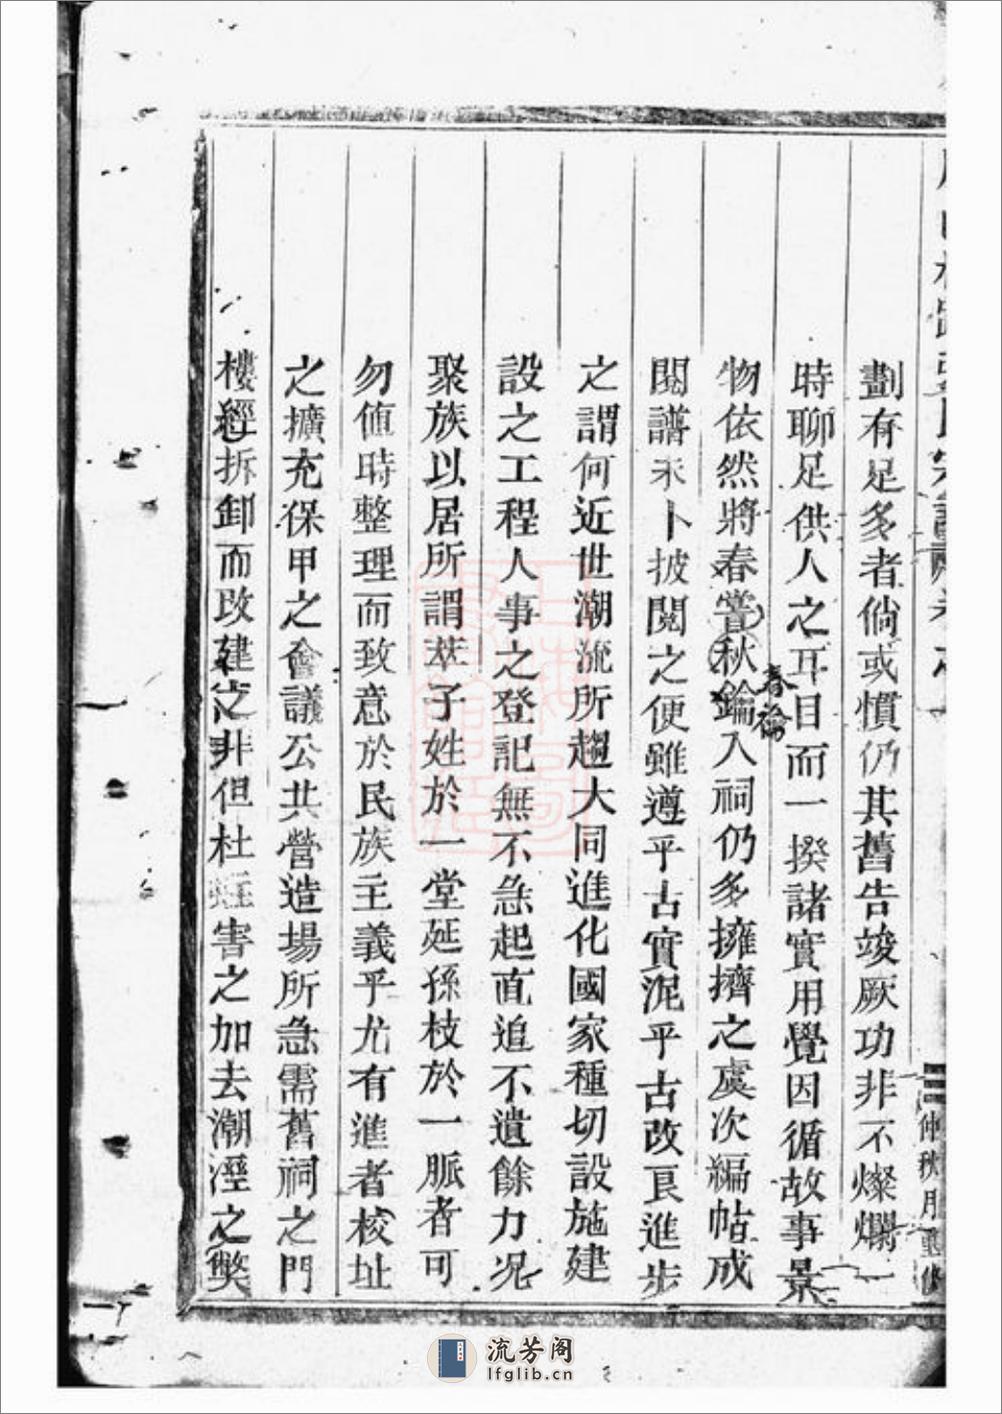 宗譜
仲秋月重修
劃有足多者倘或慣仍其舊告竣厥功非不燦爛一
時聊足供人之耳目而一揆諸實用覺因循故事景
物依然將春嘗秋鑰入祠仍多擁擠之虞次編帖成
春禴
閱譜未卜披閱之便雖遵乎古實泥乎古改良進步
之謂何近世潮流所趨大同進化國家種切設施建
設之工程人事之登記無不急起直追不遺餘力况
聚族以居所謂萃子姓於一堂延孫枝於一脈者可
勿值時整理而致意於民族主義乎尤有進者校址
之擴充保甲之會議公共營造場所急需舊祠之門
樓經拆卸而改建之非但杜蛀害之加去潮溼之獘
流芳阁
lfglib.cn